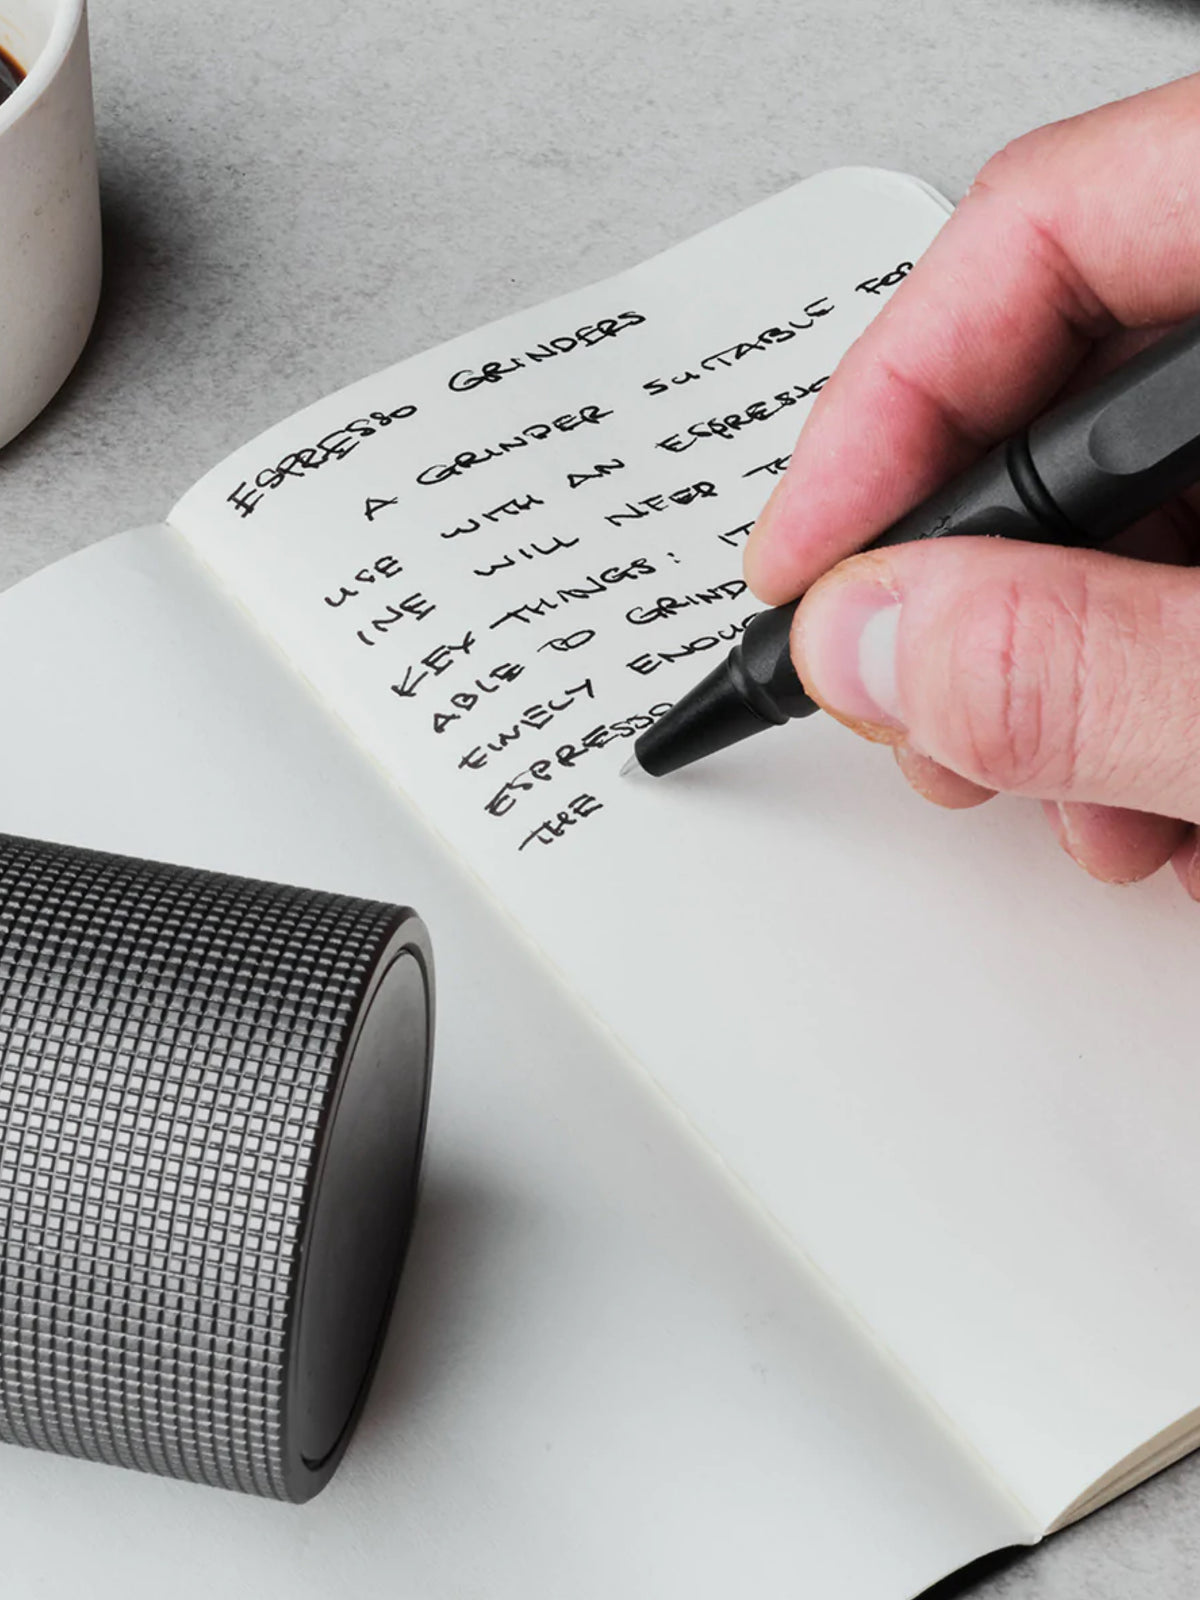 ESPRESSO GRINDERS
A GRINDER SUITABLE FOR
USE WITH AN ESPRESSO
INE WILL NEED TO
KEY THINGS: IT
ABLE TO GRIND
FINELY ENOUG
ESPRESSO
THE